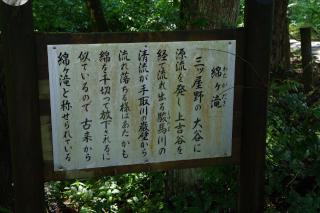 綿ヶ滝
わたがたき
三ツ屋野の大谷に
源流を発し上吉谷を
経て流れ出る駿馬川の
清流が手取川の巌壁から
流れ落ちる様はあたかも
綿を千切って放下されるに
似ているので 古来から
綿ヶ滝と称せられている